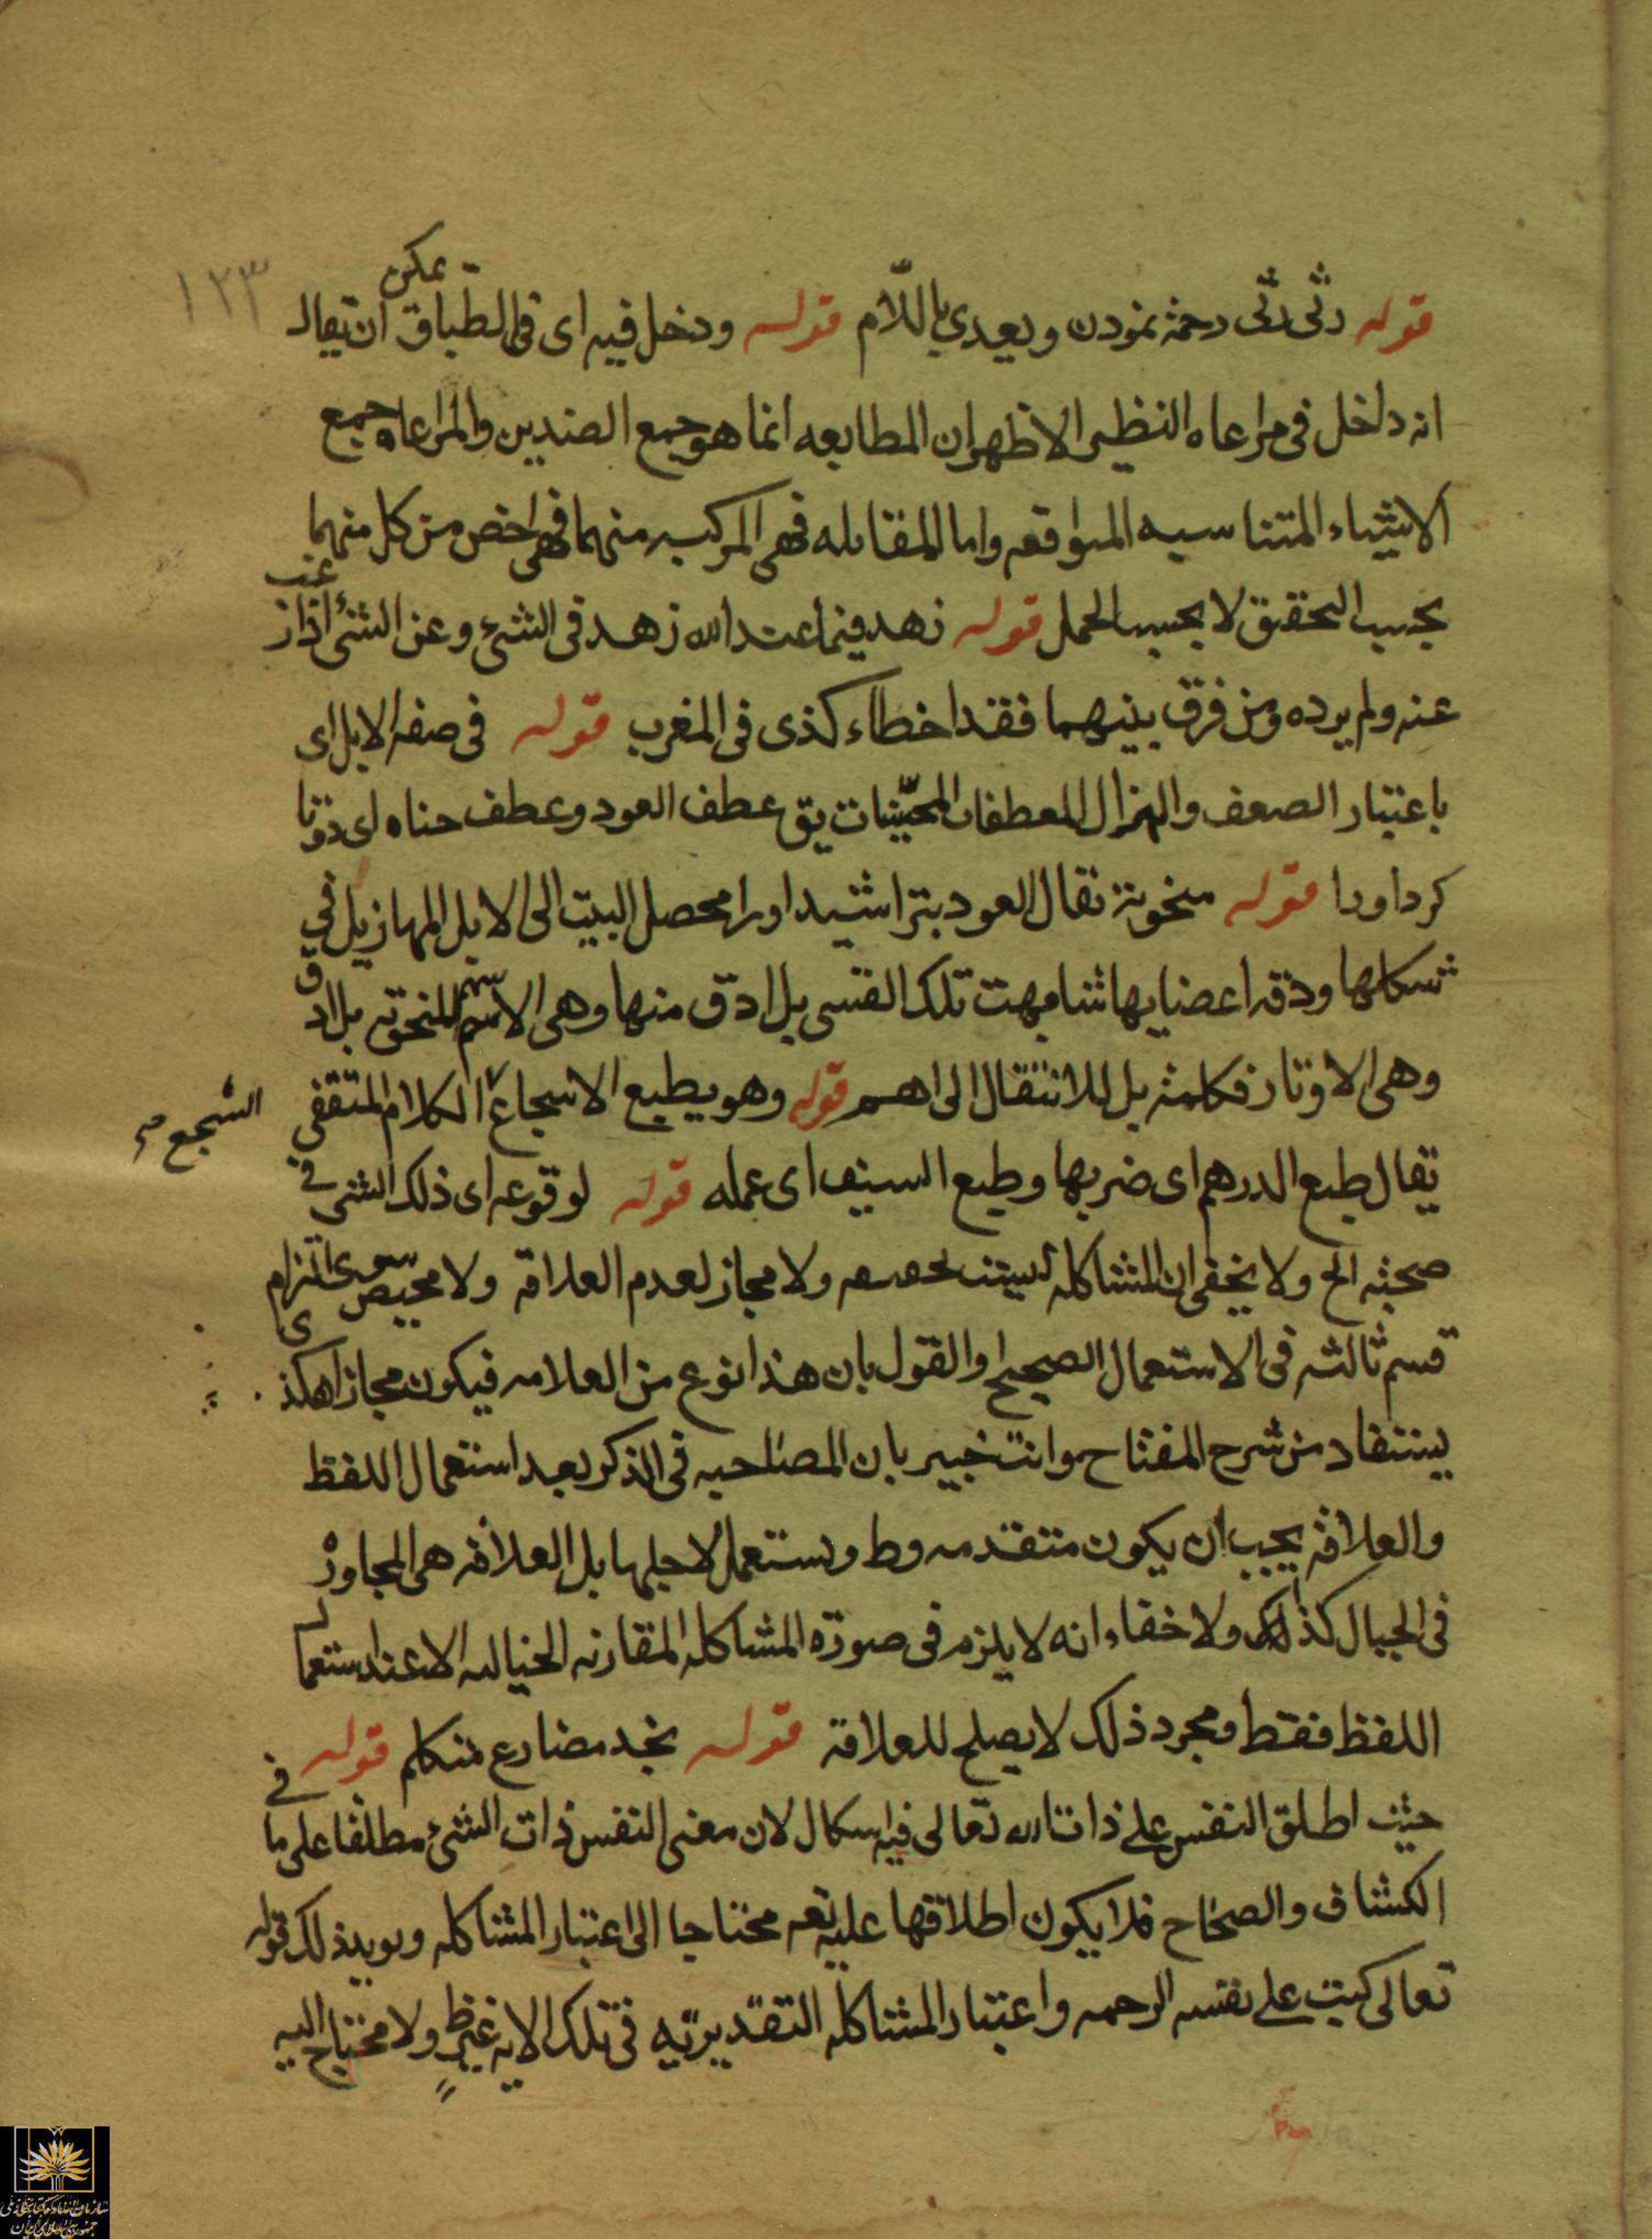 قوله رثی رثی رحمة نمودن ويعدی باللّام قوله ودخل فيه ای فی الطباق يمكن ان يقال
انه داخل فی مراعاه النظير الاظهر ان المطابعه انما هو جمع الضدين والمراعاه جمع
الاشياء المتناسبه المتوافقه واما المقابله فهی المركبه منهما فهی اخص من كل منهما
بحسب التحقق لا بحسب الحمل قوله زهد فيما عند الله زهد فی الشیء وعن الشیء اذا رغب
عنه ولم يرده ومن فرق بينهما فقد اخطاء كذی فی المغرب قوله فی صفه الابل ای
باعتبار الضعف والهزال المعطفات المحنيّات يق عطف العود وعطف حناه ای دوتا
كرد اورا قوله منحوته يقال العود بتراشيد اورا محصل البيت الی الابل المهازيل فی
شكلها ودقه اعضايها شابهت تلك القسی بل ادق منها وهی الاسهم المنحوته بل ادق
وهی الاوتار فكلمة بل للانتقال الی اهم قوله وهو يطبع الاسجاع الكلام المتقفی
السجع صح
يقال طبع الدرهم ای ضربها وطبع السيف ای عمله قوله لوقوعه ای ذلك الشی فی
صحبته الخ ولا يخفی ان المشاكله ليست بحقيقه ولا مجاز لعدم العلاقة ولا محيص سوی التزام
قسم ثالثه فی الاستعمال الصحيح او القول بان هذا نوع من العلاقه فيكون مجازا هكذی
يستفاد من شرح المفتاح وانت خبير بان المصاحبه فی الذكر بعد استعمال اللفظ
والعلاقه يجب ان يكون متقدمه وط ويستعمل لاجلها بل العلاقه هی المجاورة
فی الخيال كذلك ولا خفاء انه لا يلزم فی صورة المشاكله المقارنه الخياليه الا عند استعمال
اللفظ فقط ومجرد ذلك لا يصلح للعلاقة قوله نجد مضارع متكلم قوله
حيث اطلق النفس علی ذات الله تعالی فيه اسكال لان معنی النفس ذات الشیء مطلقا علی ما فی
الكشاف والصحاح فلا يكون اطلاقها عليه تعه محتاجا الی اعتبار المشاكله ويويد ذلك قوله
تعالی كتب علی نفسه الرحمه واعتبار المشاكله التقديريّه فی تلك الايه غير ظ ولا محتاج اليه